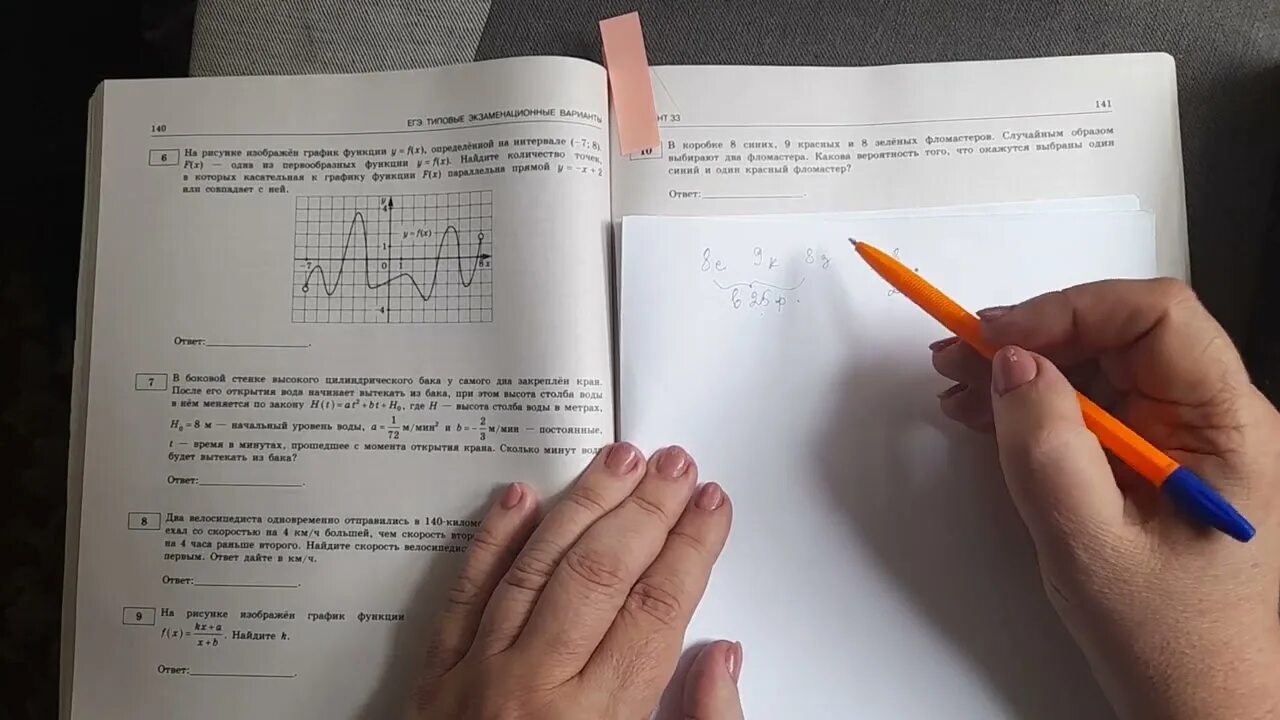 140
ЕГЭ ТИПОВЫЕ ЭКЗАМЕНАЦИОННЫЕ ВАРИАНТЫ
6
На рисунке изображён график функции y = f(x), определённой на интервале (−7; 8).
F(x) — одна из первообразных функции y = f(x). Найдите количество точек,
в которых касательная к графику функции F(x) параллельна прямой y = −x + 2
или совпадает с ней.
y
4
y = f(x)
1
−7
0
1
8
x
−4
Ответ:
7
В боковой стенке высокого цилиндрического бака у самого дна закреплён кран.
После его открытия вода начинает вытекать из бака, при этом высота столба воды
в нём меняется по закону H(t) = at² + bt + H₀, где H — высота столба воды в метрах,
H₀ = 8 м — начальный уровень воды, a = 1/72 м/мин² и b = −2/3 м/мин — постоянные,
t — время в минутах, прошедшее с момента открытия крана. Сколько минут
будет вытекать из бака?
Ответ:
8
Два велосипедиста одновременно отправились в 140-
ехал со скоростью на 4 км/ч большей, чем скорость
на 4 часа раньше второго. Найдите скорость
первым. Ответ дайте в км/ч.
Ответ:
9
На рисунке изображён график функции
f(x) = kx + a / x + b. Найдите k.
Ответ:
33
141
10
В коробке 8 синих, 9 красных и 8 зелёных фломастеров. Случайным образом
выбирают два фломастера. Какова вероятность того, что окажутся выбраны один
синий и один красный фломастер?
Ответ:
8с 9к 8з 8
25 ф.